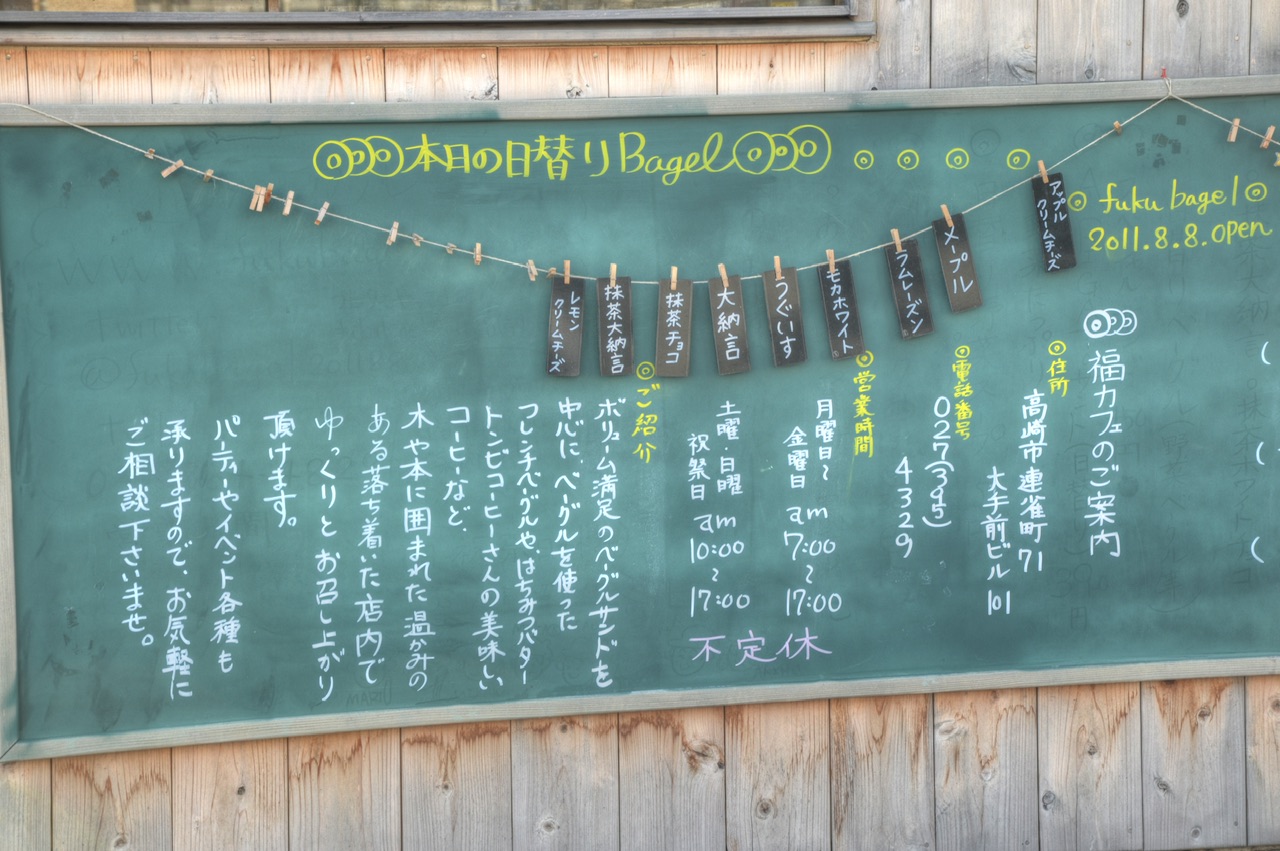 本日の日替りBagel
fuku bagel
2011.8.8.open
アップル
クリームチーズ
メープル
ラムレーズン
モカホワイト
うぐいす
大納言
抹茶チョコ
抹茶大納言
レモン
クリームチーズ
福カフェのご案内
住所
高崎市連雀町71
大手前ビル101
電話番号
027(395)
4329
営業時間
月曜日〜
金曜日
am
7:00
〜
17:00
土曜・日曜
祝祭日
am
10:00
〜
17:00
不定休
ご紹介
ボリューム満足のベーグルサンドを
中心に、ベーグルを使った
フレンチベーグルや、はちみつバター
トンビコーヒーさんの美味しい
コーヒーなど、
木や本に囲まれた温かみの
ある落ち着いた店内で
ゆっくりとお召し上がり
頂けます。
パーティーやイベント各種も
承りますので、お気軽に
ご相談下さいませ。